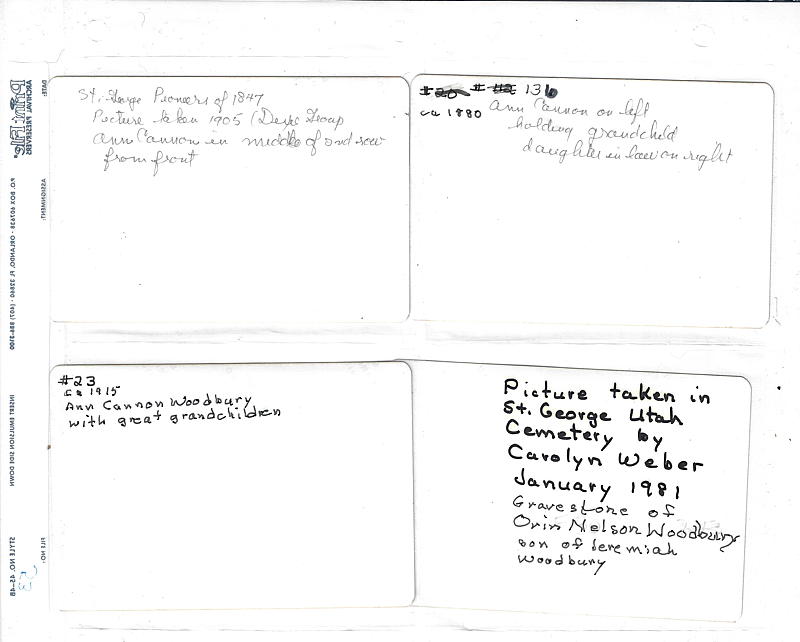 St. George Pioneers of 1847
Picture taken 1905 Group
Ann Cannon in middle of 2nd row
from front
136
ca 1880 Ann Cannon on left
holding grandchild
daughter in law on right
#23
ca 1915
Ann Cannon Woodbury
with great grandchildren
Picture taken in
St. George Utah
Cemetery by
Carolyn Weber
January 1981
Gravestone of
Orin Nelson Woodbury
son of Jeremiah
Woodbury
DATE:
ASSIGNMENT:
FILE NO:
ARCHIVAL PRESERVERS
PRINT FILE
INSERT EMULSION SIDE DOWN
STYLE NO. 45-4B